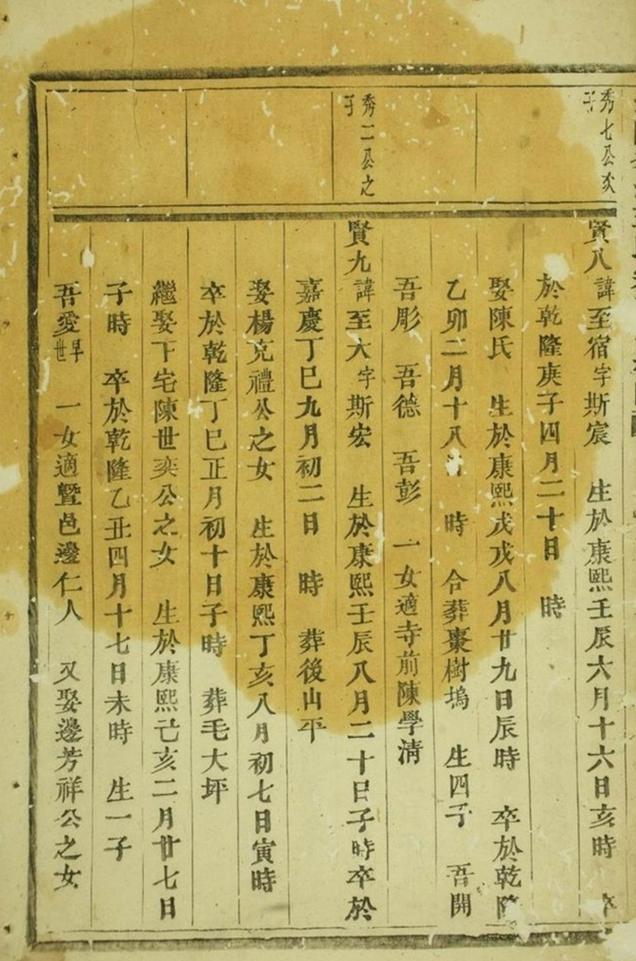 秀七公次子
賢八諱至宿字斯宸　生於康熙壬辰六月十六日亥時　卒
於乾隆庚子四月二十日　時
娶陳氏　生於康熙戊戌八月廿九日辰時　卒於乾隆
乙卯二月十八　時　合葬棗樹塢　生四子　吾開
吾彫　吾德　吾彭　一女適寺前陳學淸
秀二公之子
賢九諱至大字斯宏　生於康熙壬辰八月二十日子時卒於
嘉慶丁巳九月初二日　時　葬後山平
娶楊克禮公之女　生於康熙丁亥八月初七日寅時
卒於乾隆丁巳正月初十日子時　葬毛大坪
繼娶下宅陳世奕公之女　生於康熙己亥二月廿七日
子時　卒於乾隆乙丑四月十七日未時　生一子
吾愛早世　一女適暨邑邊仁人　又娶邊芳祥公之女